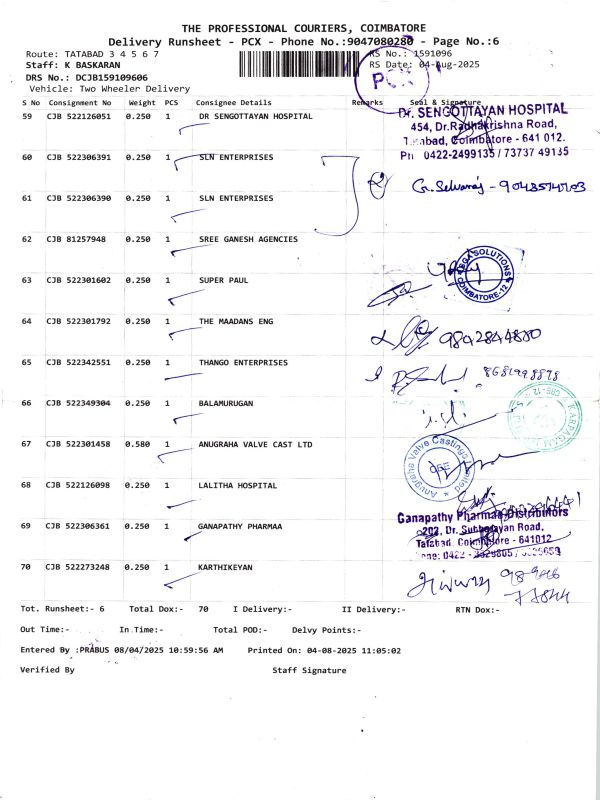 THE PROFESSIONAL COURIERS, COIMBATORE
Delivery Runsheet - PCX - Phone No.:9047080280 - Page No.:6
Route: TATABAD 3 4 5 6 7 RS No.: 1591096
Staff: K BASKARAN RS Date: 04-Aug-2025
DRS No.: DCJB159109606
Vehicle: Two Wheeler Delivery
PCX
S No Consignment No Weight PCS Consignee Details Remarks Seal & Signature
59 CJB 522126051 0.250 1 DR SENGOTTAYAN HOSPITAL
Dr. SENGOTTAYAN HOSPITAL
454, Dr.Radhakrishna Road,
Tatabad, Coimbatore - 641 012.
Ph 0422-2499135 / 73737 49135
60 CJB 522306391 0.250 1 SLN ENTERPRISES
61 CJB 522306390 0.250 1 SLN ENTERPRISES
G. Selvaraj -
62 CJB 81257948 0.250 1 SREE GANESH AGENCIES
63 CJB 522301602 0.250 1 SUPER PAUL
SOLUTIONS
COIMBATORE-12
64 CJB 522301792 0.250 1 THE MAADANS ENG
9842844880
65 CJB 522342551 0.250 1 THANGO ENTERPRISES
8681998878
66 CJB 522349304 0.250 1 BALAMURUGAN
CBE-12
67 CJB 522301458 0.580 1 ANUGRAHA VALVE CAST LTD
Anugraha Valve Castings Limited
CBE
68 CJB 522126098 0.250 1 LALITHA HOSPITAL
69 CJB 522306361 0.250 1 GANAPATHY PHARMAA
Ganapathy Pharmaa Distributors
202, Dr. Subbarayan Road,
Tatabad, Coimbatore - 641012
70 CJB 522273248 0.250 1 KARTHIKEYAN
Tot. Runsheet:- 6 Total Dox:- 70 I Delivery:- II Delivery:- RTN Dox:-
Out Time:- In Time:- Total POD:- Delvy Points:-
Entered By :PRABUS 08/04/2025 10:59:56 AM Printed On: 04-08-2025 11:05:02
Verified By Staff Signature